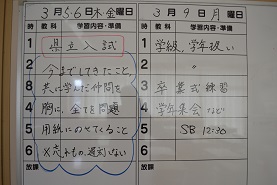 3月5.6日木.金曜日
時 教科 学習内容・準備
1 県立入試
2 今までしてきたこと、
3 共に学んだ仲間を
4 胸に、全てを問題
5 用紙にのせてくること
6 ×忘れもの、遅刻しない
放課
3月9日月曜日
時 教科 学習内容・準備
1 学級、学年扱い
2 〃
3 卒業式練習
4 学年集会など
5 SB 12:30
6
放課